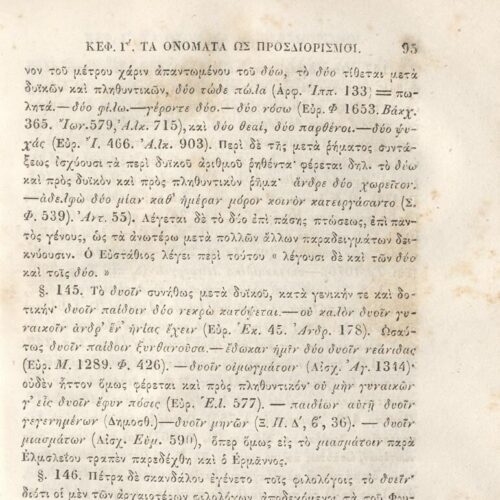 ΚΕΦ. Γ΄. ΤΑ ΟΝΟΜΑΤΑ ΩΣ ΠΡΟΣΔΙΟΡΙΣΜΟΙ. 95
νον τοῦ μέτρου χάριν ἀπαντωμένου τοῦ δύω, τὸ δύο τίθεται μετὰ
δυϊκῶν καὶ πληθυντικῶν, δύο τώδε πώλα (Ἀρφ. Ἱππ. 133) = πω-
λητά.—δύο φίλω.—γέροντε δύο.—δύο νόσω (Εὐρ. Φ 1653. Βάκχ.
365. Ἴων. 579, Ἄλκ. 715), καὶ δύο θεαί, δύο παρθένοι.—δύο ψυ-
χάς (Εὐρ. Ἱ. 466. Ἄλκ. 903). Περὶ δὲ τῆς μετὰ ῥήματος συντά-
ξεως ἰσχύουσι τὰ περὶ δυϊκοῦ ἀριθμοῦ ῥηθέντα· φέρεται δηλ. τὸ δύω
καὶ πρὸς δυϊκὸν καὶ πρὸς πληθυντικὸν ῥῆμα· ἄνδρε δύο χωρεῖτον.
—ἀδελφὼ δύο μίαν καθ' ἡμέραν μόρον κοινὸν κατειργάσαντο (Σ.
Φ. 539). Ἀντ. 55). Λέγεται δὲ τὸ δύο ἐπὶ πάσης πτώσεως, ἐπὶ παν-
τὸς γένους, ὡς τὰ ἀνωτέρω μετὰ πολλῶν ἄλλων παραδειγμάτων δει-
κνύουσιν. Ὁ Εὐστάθιος λέγει περὶ τούτου « λέγουσι δὲ καὶ τῶν δύο
καὶ τοῖς δύο. »
§. 145. Τὸ δυοῖν συνήθως μετὰ δυϊκοῦ, κατὰ γενικήν τε καὶ δο-
τικήν· δυοῖν παίδοιν δύο νεκρὼ κατόψεται.—οὐ καλὸν δυοῖν γυ-
ναικοῖν ἄνδρ' ἕν' ἡνίας ἔχειν (Εὐρ. Ἑκ. 45. Ἀνδρ. 178). Ὡσαύ-
τως δυοῖν παίδοιν ξυνθανοῦσα.—ἔδωκαν ἡμῖν δύο δυοῖν νεάνιδας
(Εὐρ. Μ. 1289. Φ. 426). —δυοῖν οἰμωγμάτοιν (Αἰσχ. Ἀγ. 1344)·
οὐδὲν ἧττον ὅμως φέρεται καὶ πρὸς πληθυντικόν· οὐ μὴν γυναικῶν
γ' εἷς δυοῖν ἔφυν πόσις (Εὐρ. Ἐλ. 577). — παιδίων αὐτῇ δυοῖν
γεγενημένων (Δημοσθ.) —δυοῖν μηνῶν (Ξ. Π. Δ, ϐ', 36). — δυοῖν
μιασμάτων (Αἰσχ. Εὐμ. 590), ὅπερ ὅμως εἰς τὸ μιασμάτοιν παρὰ
Ἐλμσλεΐου τραπὲν παρεδέχθη καὶ ὁ Ἕρμαννος.
§. 146. Πέτρα δὲ σκανδάλου ἐγένετο τοῖς φιλολόγοις τὸ δυεῖν·
διότι οἱ μὲν τῶν ἀρχαιοτέρων φιλολόγων